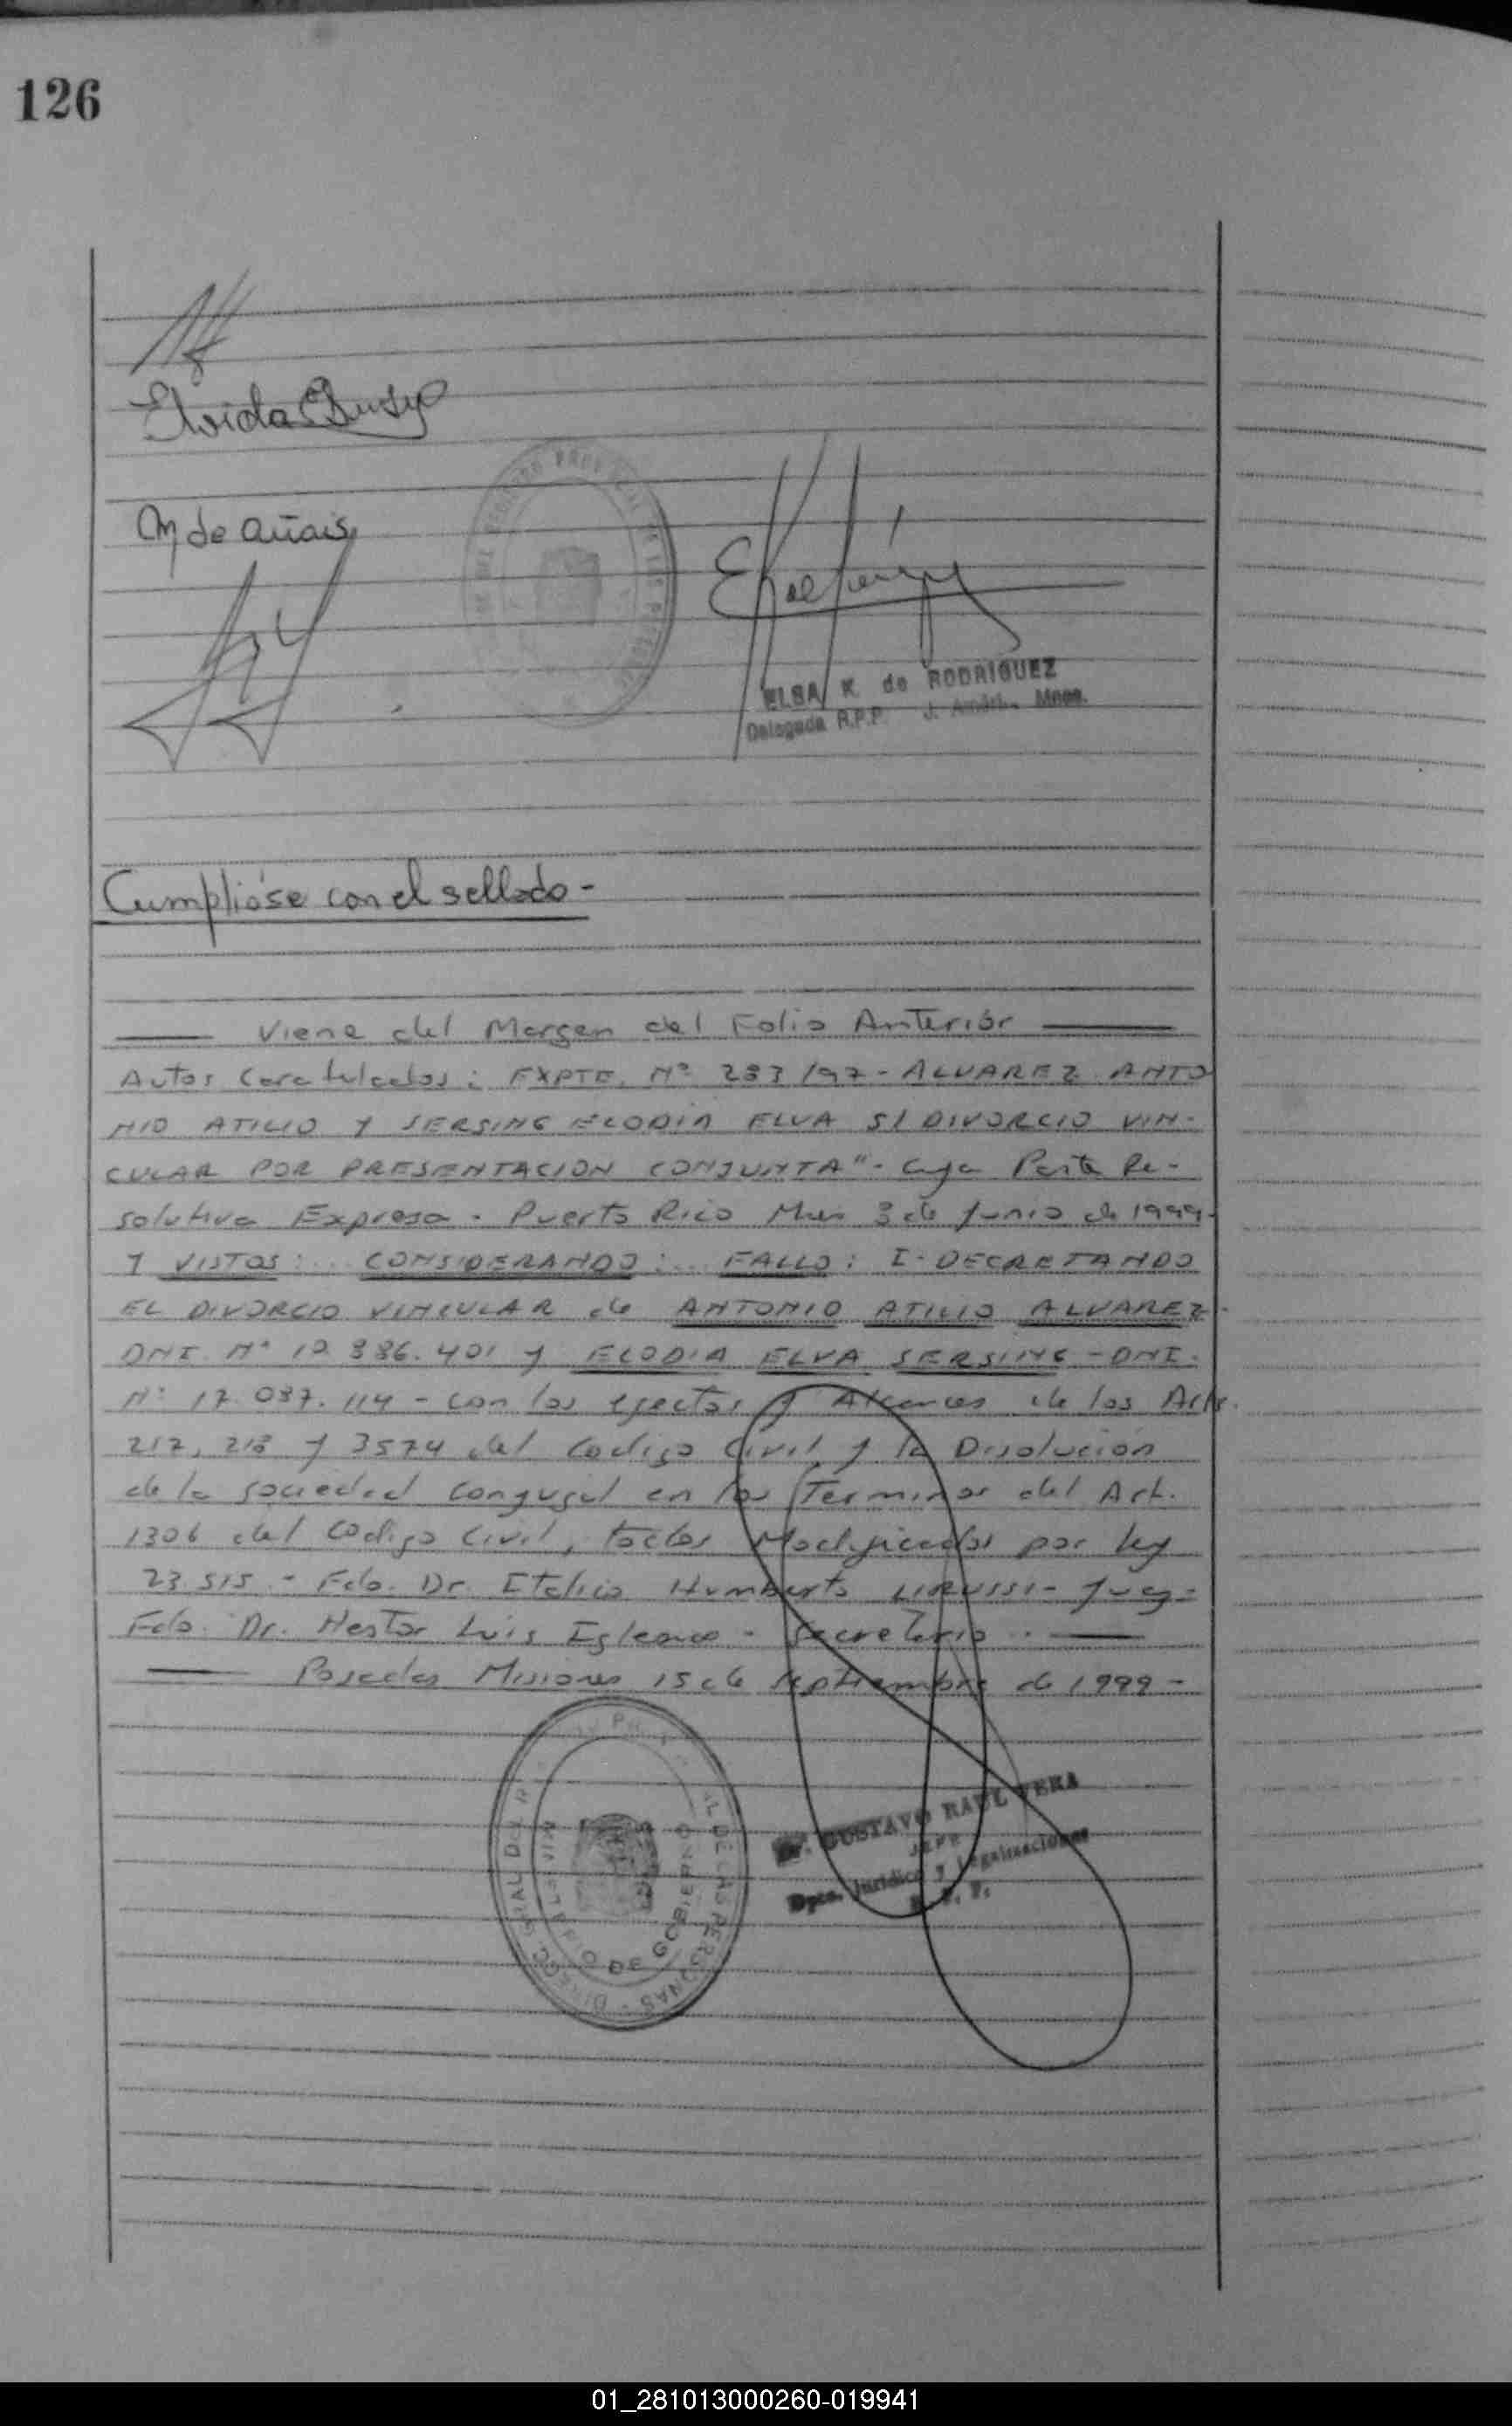 126
Elvida
M de
ELSA K. de RODRIGUEZ
Delegada R.P.P. J. Mnes.
Cumplióse con el sellado -
Viene del Margen del Folio Anterior
Autos Caratulados: EXPTE. Nº 283/97 - ALVAREZ ANTO
NIO ATILIO Y SERSING ELODIA ELVA S/ DIVORCIO VIN-
CULAR POR PRESENTACION CONJUNTA" - Cuya Parte Re-
solutiva Expresa - Puerto Rico Mnes 3 de Junio de 1999-
Y VISTOS: ... CONSIDERANDO: ... FALLO: I - DECRETANDO
EL DIVORCIO VINCULAR de ANTONIO ATILIO ALVAREZ -
DNI. Nº 401 y ELODIA ELVA SERSING - DNI-
Nº 17.037.114 - con los efectos y Alcances de los Arts.
217, 218 y 3574 del Codigo Civil y la Disolución
de la sociedad conyugal en los Terminos del Art.
1306 del Codigo Civil, todos Modificados por Ley
23.515 - Fdo. Dr. Italico Humberto LIRUSSI - Juez -
Fdo. Dr. Nestor Luis - Secretario . -
Posadas Misiones 15 de Septiembre de 1999 -
MINISTERIO DE GOBIERNO
Dr. GUSTAVO RAUL VERA
JEFE
Dpto. Jurídico y Legalizaciones
R. P. P.
01_281013000260-019941